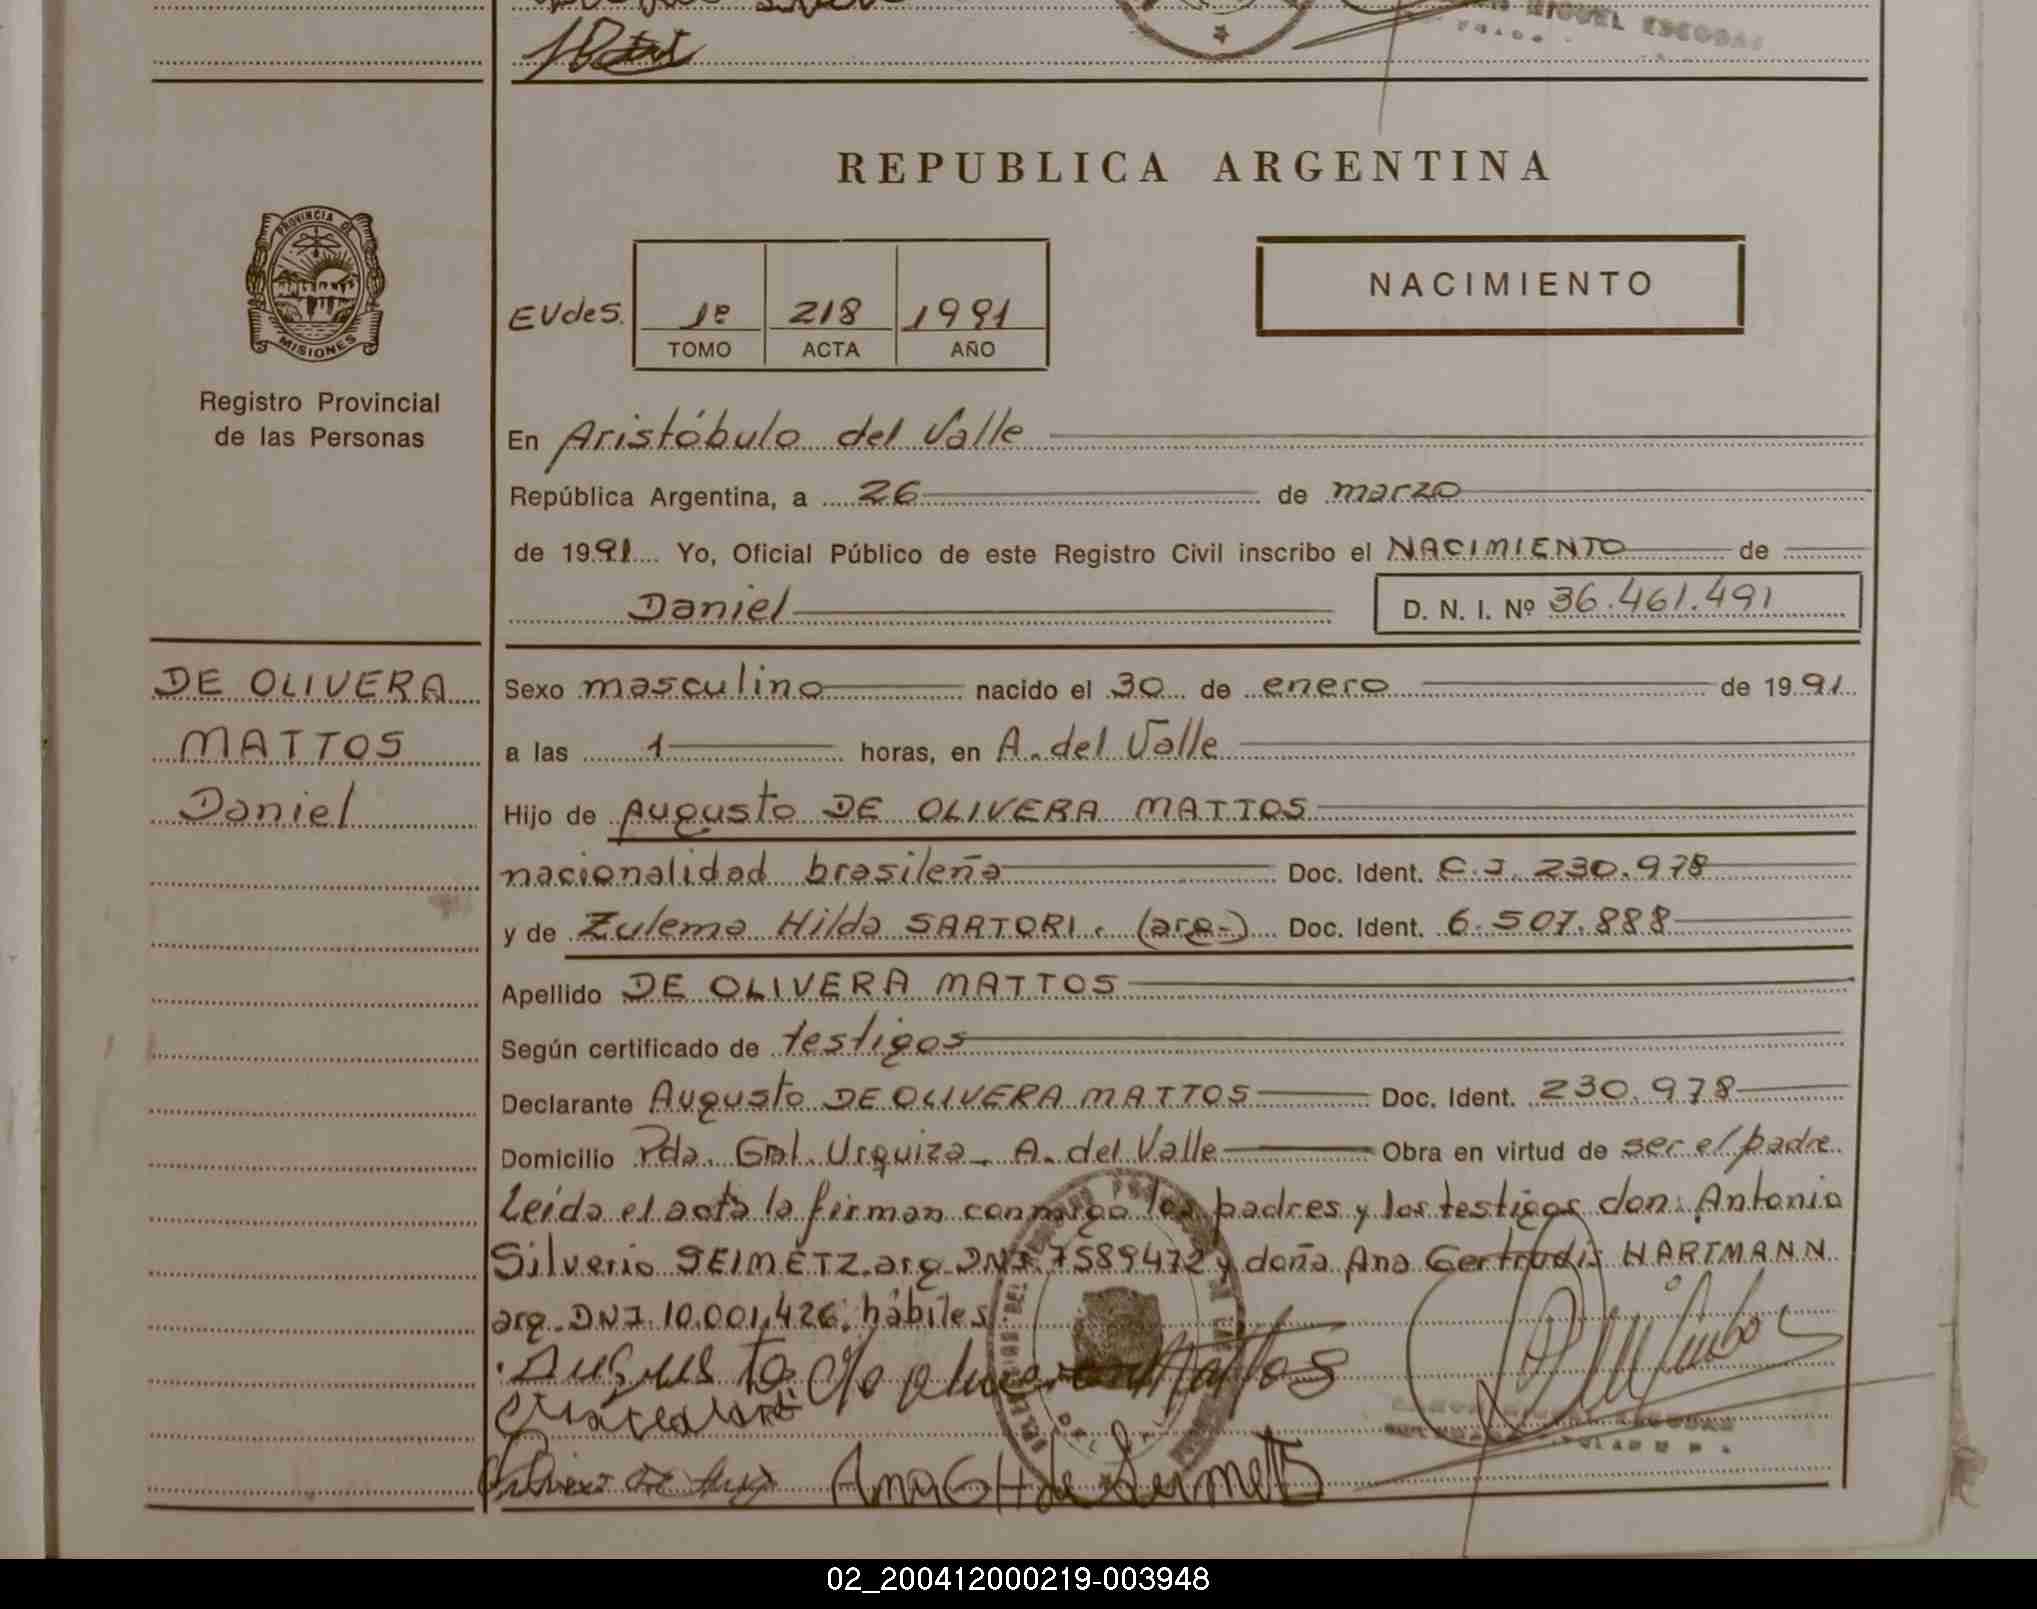 MIGUEL ESCOBAR
REPUBLICA ARGENTINA
PROVINCIA DE
MISIONES
Registro Provincial
de las Personas
NACIMIENTO
EVdeS. 1º 218 1991
TOMO ACTA AÑO
En Aristóbulo del Valle
República Argentina, a 26 de marzo
de 1991 Yo, Oficial Público de este Registro Civil inscribo el NACIMIENTO de
Daniel D. N. I. Nº 36.461.491
DE OLIVERA
MATTOS
Daniel
Sexo masculino nacido el 30 de enero de 1991
a las 1 horas, en A. del Valle
Hijo de Augusto DE OLIVERA MATTOS
nacionalidad brasileña Doc. Ident. C.I. 230.978
y de Zulema Hilda SARTORI. (arg.) Doc. Ident. 6.507.888
Apellido DE OLIVERA MATTOS
Según certificado de testigos
Declarante Augusto DE OLIVERA MATTOS Doc. Ident. 230.978
Domicilio Pda. Gral. Urquiza - A. del Valle Obra en virtud de ser el padre.
Leída el acta la firman conmigo los padres y los testigos don: Antonio
Silverio SEIMETZ.arg.DNI.7589472 y doña Ana Gertrudis HARTMANN
arg.DNI.10.001.426: hábiles.
Augusto de olivera Mattos
Ana G H de Seimetz
02_200412000219-003948